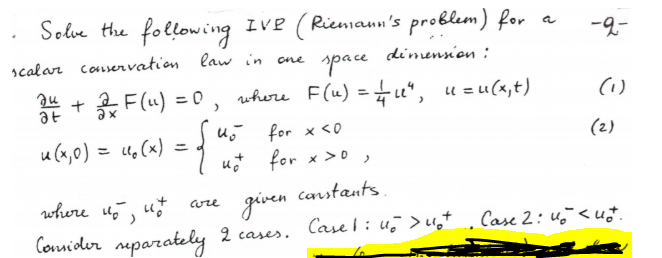 . Solve the following IVP (Riemann's problem) for a -9-
scalar conservation law in one space dimension:
∂u/∂t + ∂/∂x F(u) = 0, where F(u) = 1/4 u⁴, u = u(x,t) (1)
u(x,0) = u₀(x) = { u₀⁻ for x < 0
u₀⁺ for x > 0 , (2)
where u₀⁻, u₀⁺ are given constants.
Consider separately 2 cases. Case 1: u₀⁻ > u₀⁺. Case 2: u₀⁻ < u₀⁺.